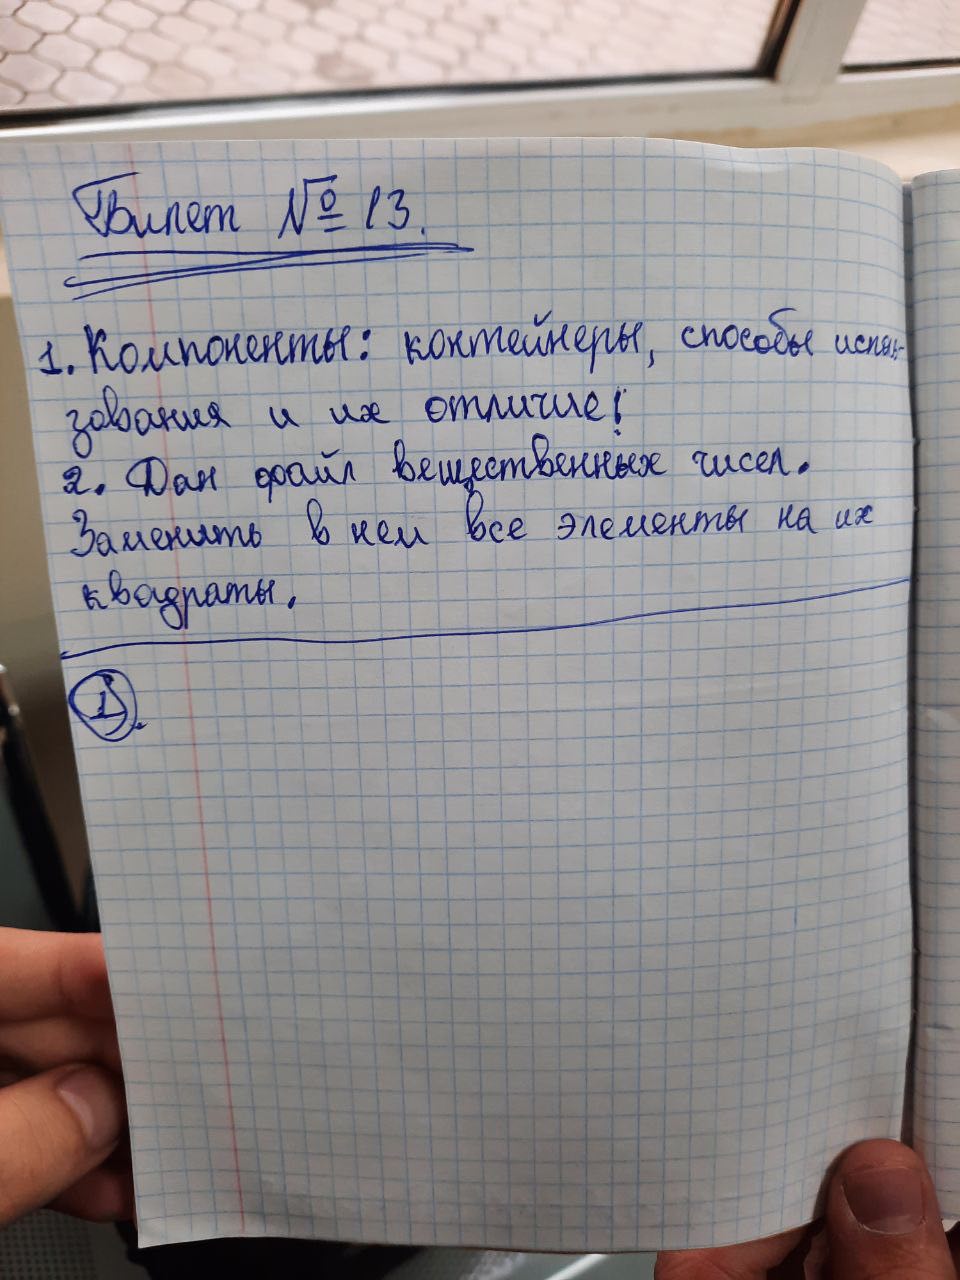 Билет № 13.
1. Компоненты: контейнеры, способы исполь-
зования и их отличие!
2. Дан файл вещественных чисел.
Заменить в нем все элементы на их
квадраты.
1.